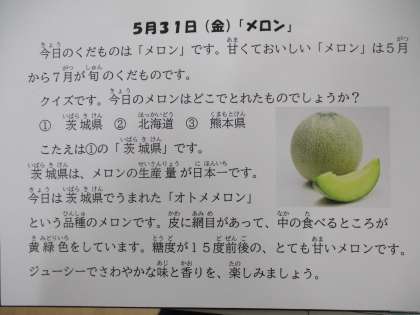 5月31日（金）「メロン」
今日のくだものは「メロン」です。甘くておいしい「メロン」は5月
から7月が旬のくだものです。
クイズです。今日のメロンはどこでとれたものでしょうか？
① 茨城県 ② 北海道 ③ 熊本県
こたえは①の「茨城県」です。
茨城県は、メロンの生産量が日本一です。
今日は茨城県でうまれた「オトメメロン」
という品種のメロンです。皮に網目があって、中の食べるところが
黄緑色をしています。糖度が15度前後の、とても甘いメロンです。
ジューシーでさわやかな味と香りを、楽しみましょう。